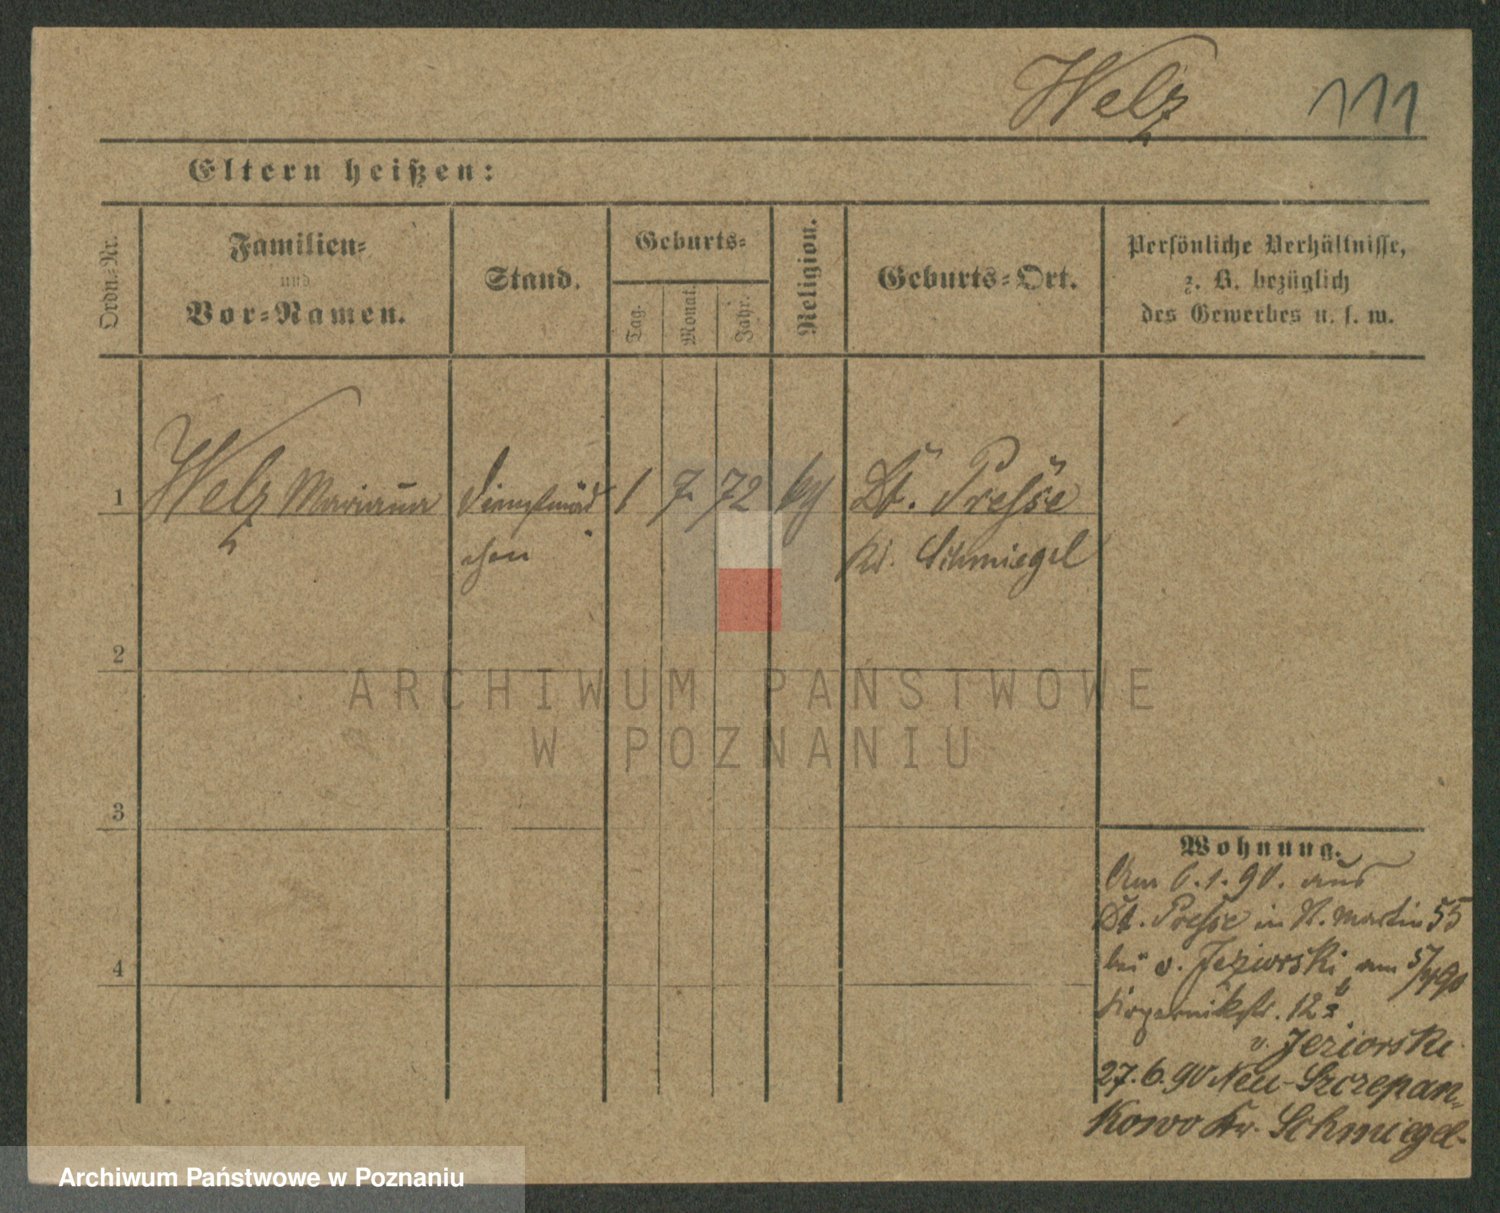 Welz 111
Eltern heißen:
Ordn.=Nr.
Familien=
und
Vor=Namen.
Stand.
Geburts=
Tag.
Monat.
Jahr.
Religion.
Geburts=Ort.
Persönliche Verhältnisse,
z. B. bezüglich
des Gewerbes u. s. w.
1 Welz Marianna Dienstmäd 1 7 72 Dt. Presse
chen Kr. Schmiegel
2
3
4
Wohnung.
Am 6.1.90. aus
Dt. Presse in St. Martin 55
bei v. Jeziorski am
12
v. Jeziorski
27.6.90 Neu-Szczepan-
kowo Kr. Schmiegel
ARCHIWUM PAŃSTWOWE
W POZNANIU
Archiwum Państwowe w Poznaniu